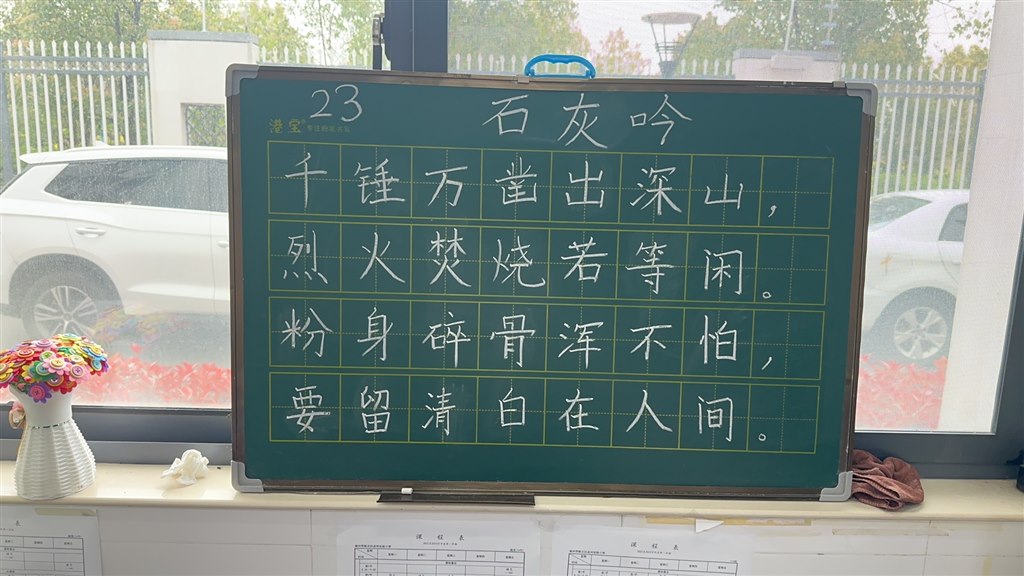 23
石灰吟
港宝®
千锤万凿出深山，
烈火焚烧若等闲。
粉身碎骨浑不怕，
要留清白在人间。
课程表
课程表